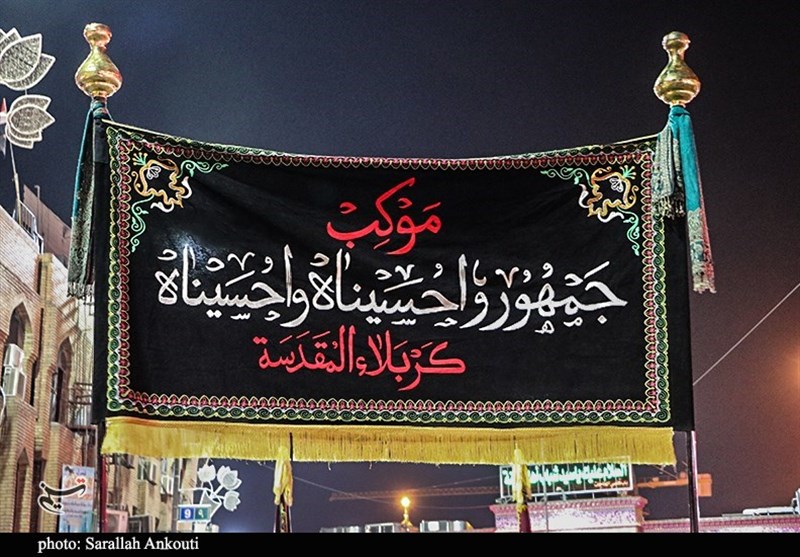 مَوْكِبُ
جَمْهُور وا حُسَيْنَاهْ وا حُسَيْنَاهْ
كَرْبَلَاءِ المُقَدَسَة
تسنیم
photo: Sarallah Ankouti